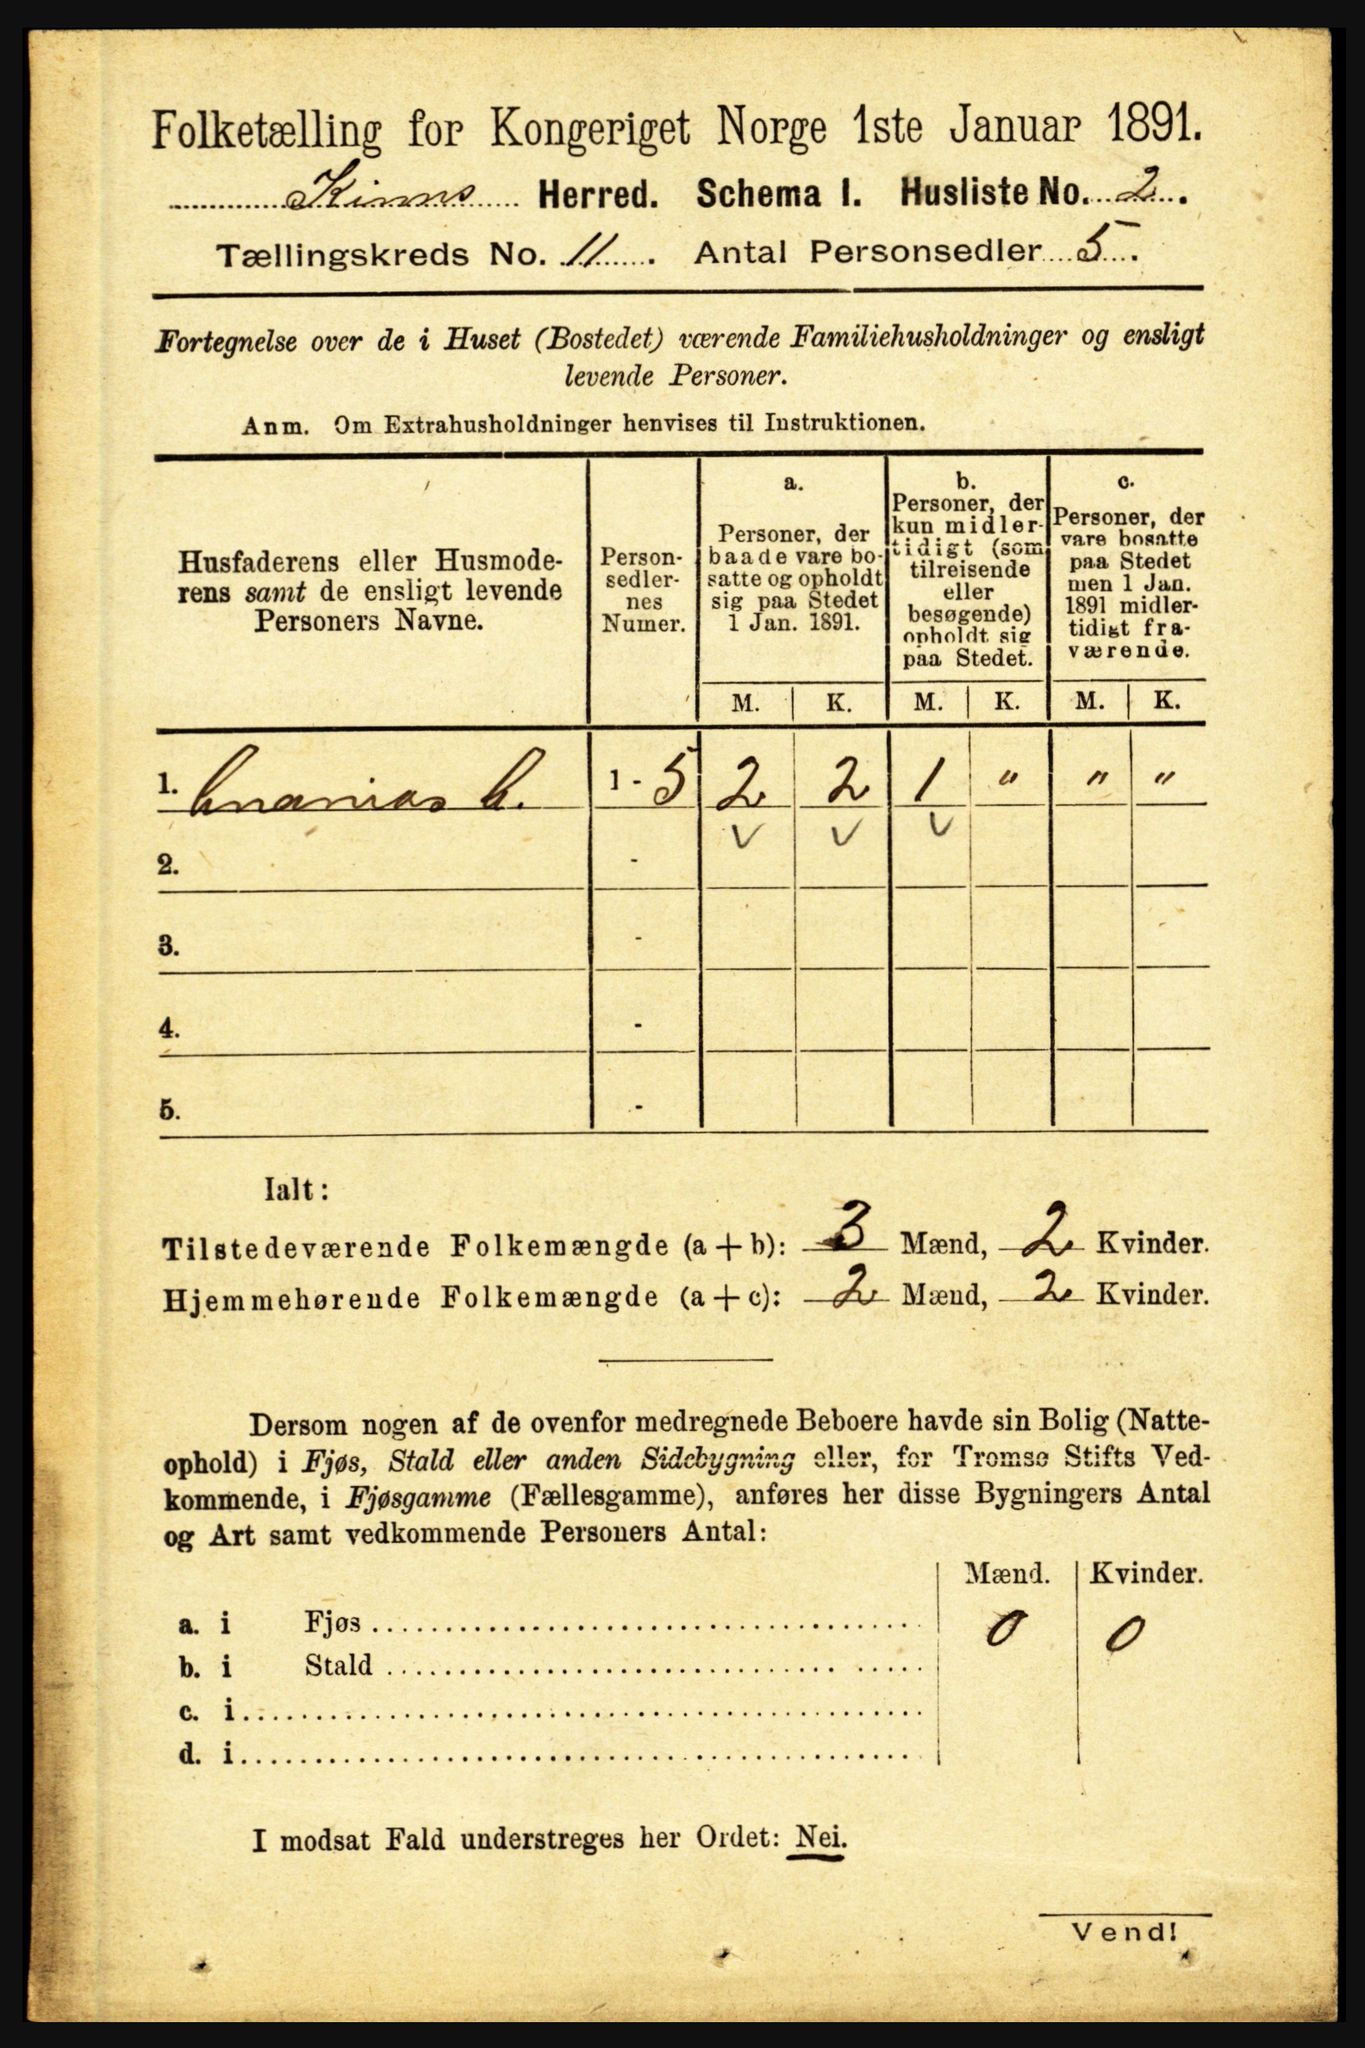 Folketælling for Kongeriget Norge 1ste Januar 1891.
Kinns Herred. Schema I. Husliste No. 2.
Tællingskreds No. 11. Antal Personsedler 5.
Fortegnelse over de i Huset (Bostedet) værende Familiehusholdninger og ensligt
levende Personer.
Anm. Om Extrahusholdninger henvises til Instruktionen.
Husfaderens eller Husmode-
rens samt de ensligt levende
Personers Navne.
Person-
sedler-
nes
Numer.
a.
Personer, der
baade vare bo-
satte og opholdt
sig paa Stedet
1 Jan. 1891.
b.
Personer, der
kun midler-
tidigt (som
tilreisende
eller
besøgende)
opholdt sig
paa Stedet.
c.
Personer, der
vare bosatte
paa Stedet
men 1 Jan.
1891 midler-
tidigt fra-
værende.
M. K. M. K. M. K.
1. Ananias A. 1 - 5 2 2 1 " " "
2. -
3. -
4. -
5. -
Ialt:
Tilstedeværende Folkemængde (a + b): 3 Mænd, 2 Kvinder.
Hjemmehørende Folkemængde (a + c): 2 Mænd, 2 Kvinder.
Dersom nogen af de ovenfor medregnede Beboere havde sin Bolig (Natte-
ophold) i Fjøs, Stald eller anden Sidebygning eller, for Tromsø Stifts Ved-
kommende, i Fjøsgamme (Fællesgamme), anføres her disse Bygningers Antal
og Art samt vedkommende Personers Antal:
Mænd. Kvinder.
a. i Fjøs 0 0
b. i Stald
c. i
d. i
I modsat Fald understreges her Ordet: Nei.
Vend!